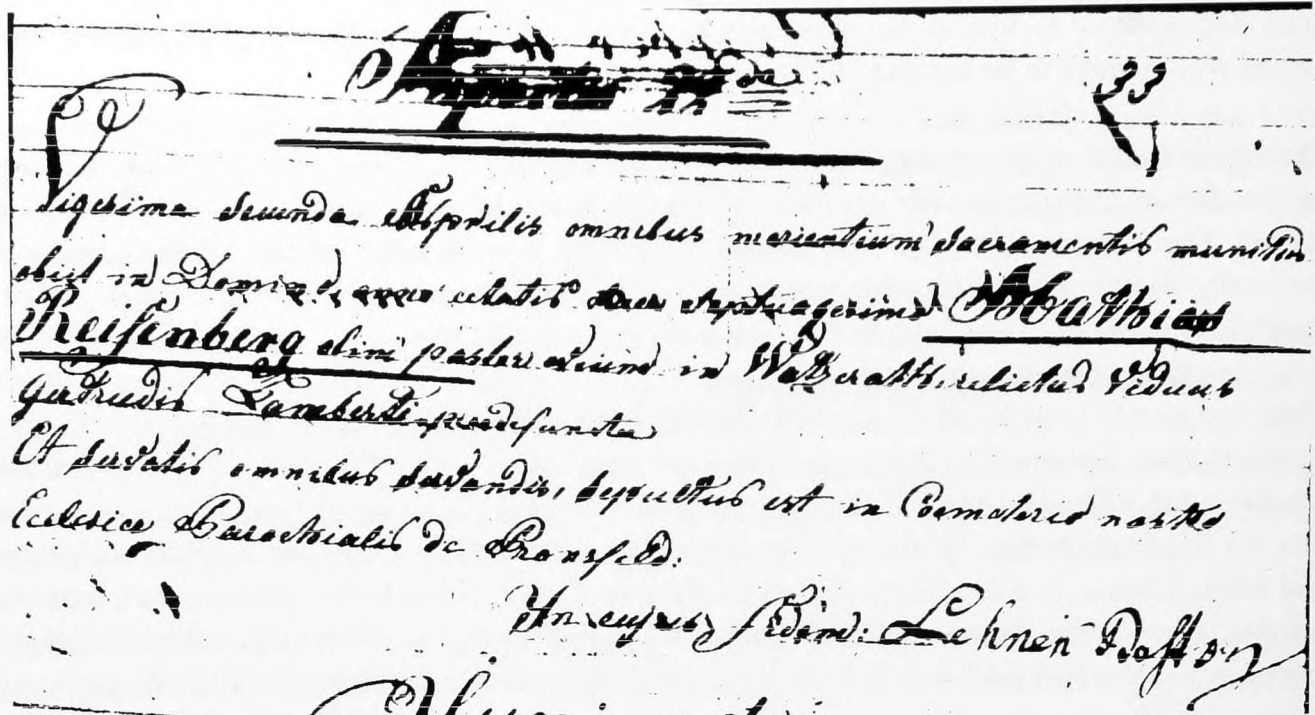 33
Vigesima secunda Aprilis omnibus morientium sacramentis munitus
obiit in Domino, anno etatis suae septuagesimo Mathias
Reifenberg olim pastor ovium in Watzeratts. relictus Viduus
Gertrudis Lamberti praedefuncta
Et servatis omnibus servandis, sepultus est in Coemeterio nostro
Eclesiae Parochialis de Pronsfed.
In cujus Fidem: Lehnen Past